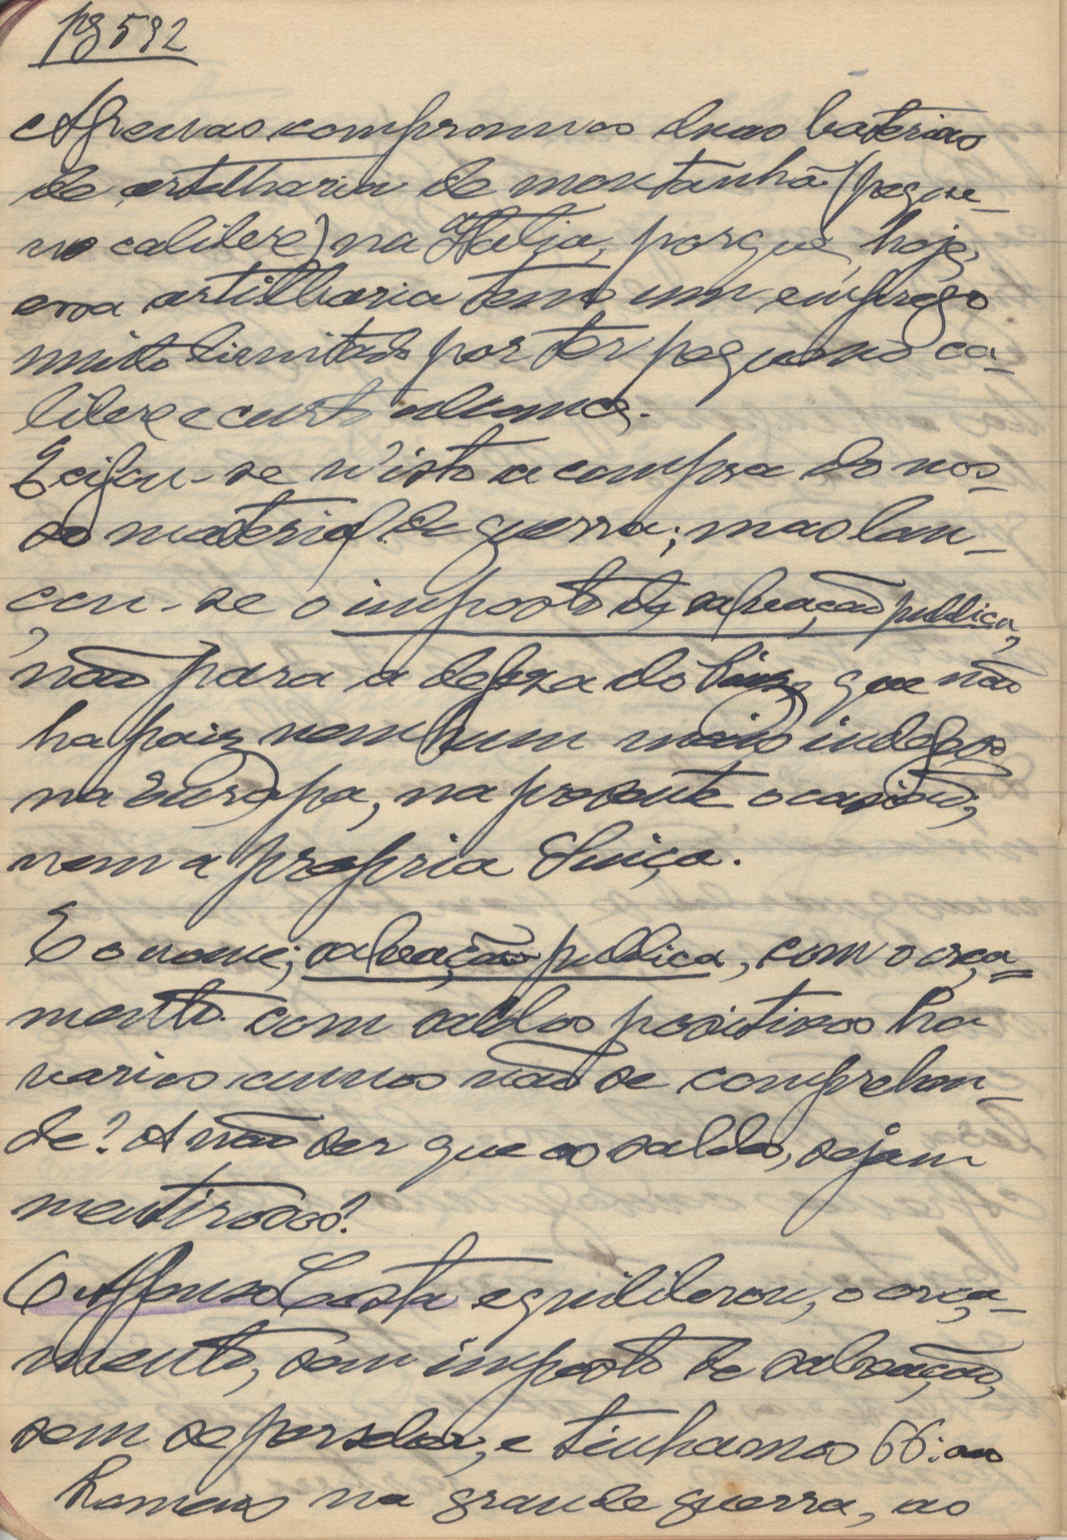 pg 592
Apenas compramos duas baterias
de artilharia de montanhã (peque-
no calibre) na Italia, porque, hoje,
essa artilharia tem um emprego
muito limitado por ter pequeno ca-
libre e curto alcance.
E cifou-se n'isto a compra do nos-
so material de guerra; mas lan-
çou-se o imposto de salvação publica,
não para a defeza do Paiz, que não
ha paiz nenhum mais indefezo
na Europa, na presente ocasião,
nem a propria Suiça.
E o nome; salvação publica, com o orça-
mento com saldos positivos ha
varios annos não se comprehen-
de? A não ser que os saldos, sejam
mentirosos?
O Affonso Costa equilibrou, o orça-
mento, sem imposto de salvação,
sem se per saldos, e tinhamos 66:000
homens na grande guerra, ao